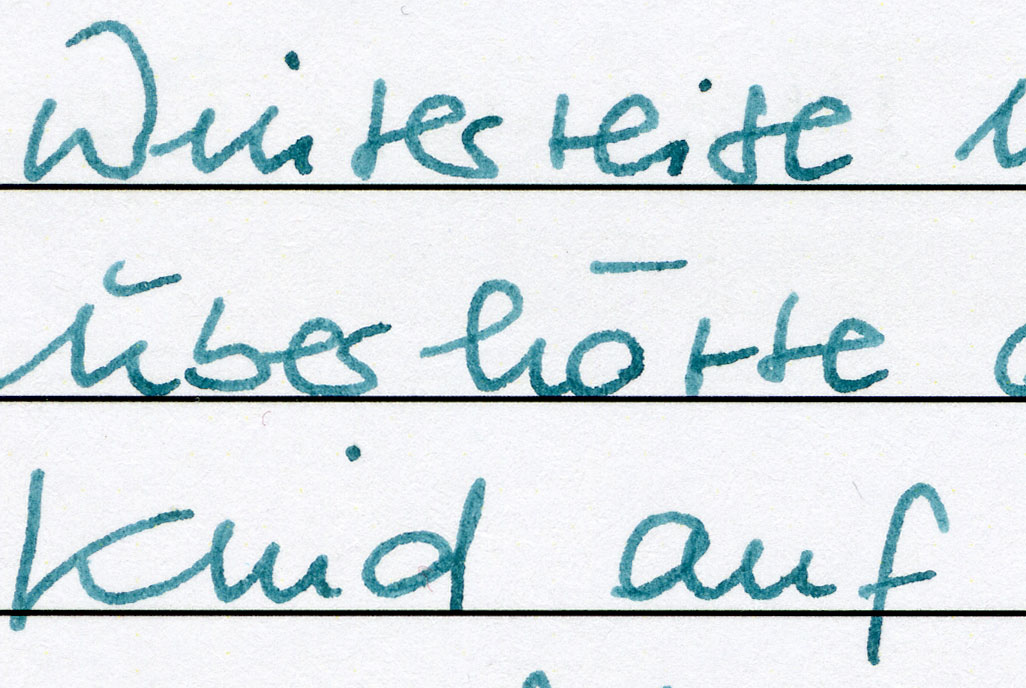 Winterreise
überhörte
Kind auf